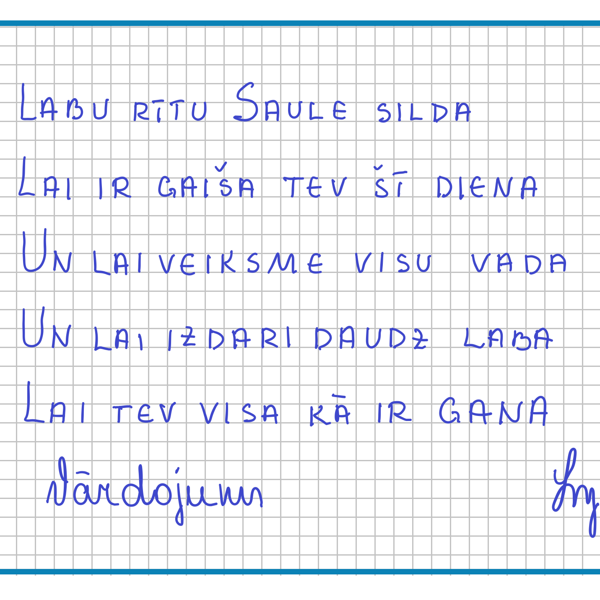 Labu rītu Saule silda
Lai ir gaiša tev šī diena
Un lai veiksme visu vada
Un lai izdari daudz laba
Lai tev visa kā ir gana
Vārdojumi